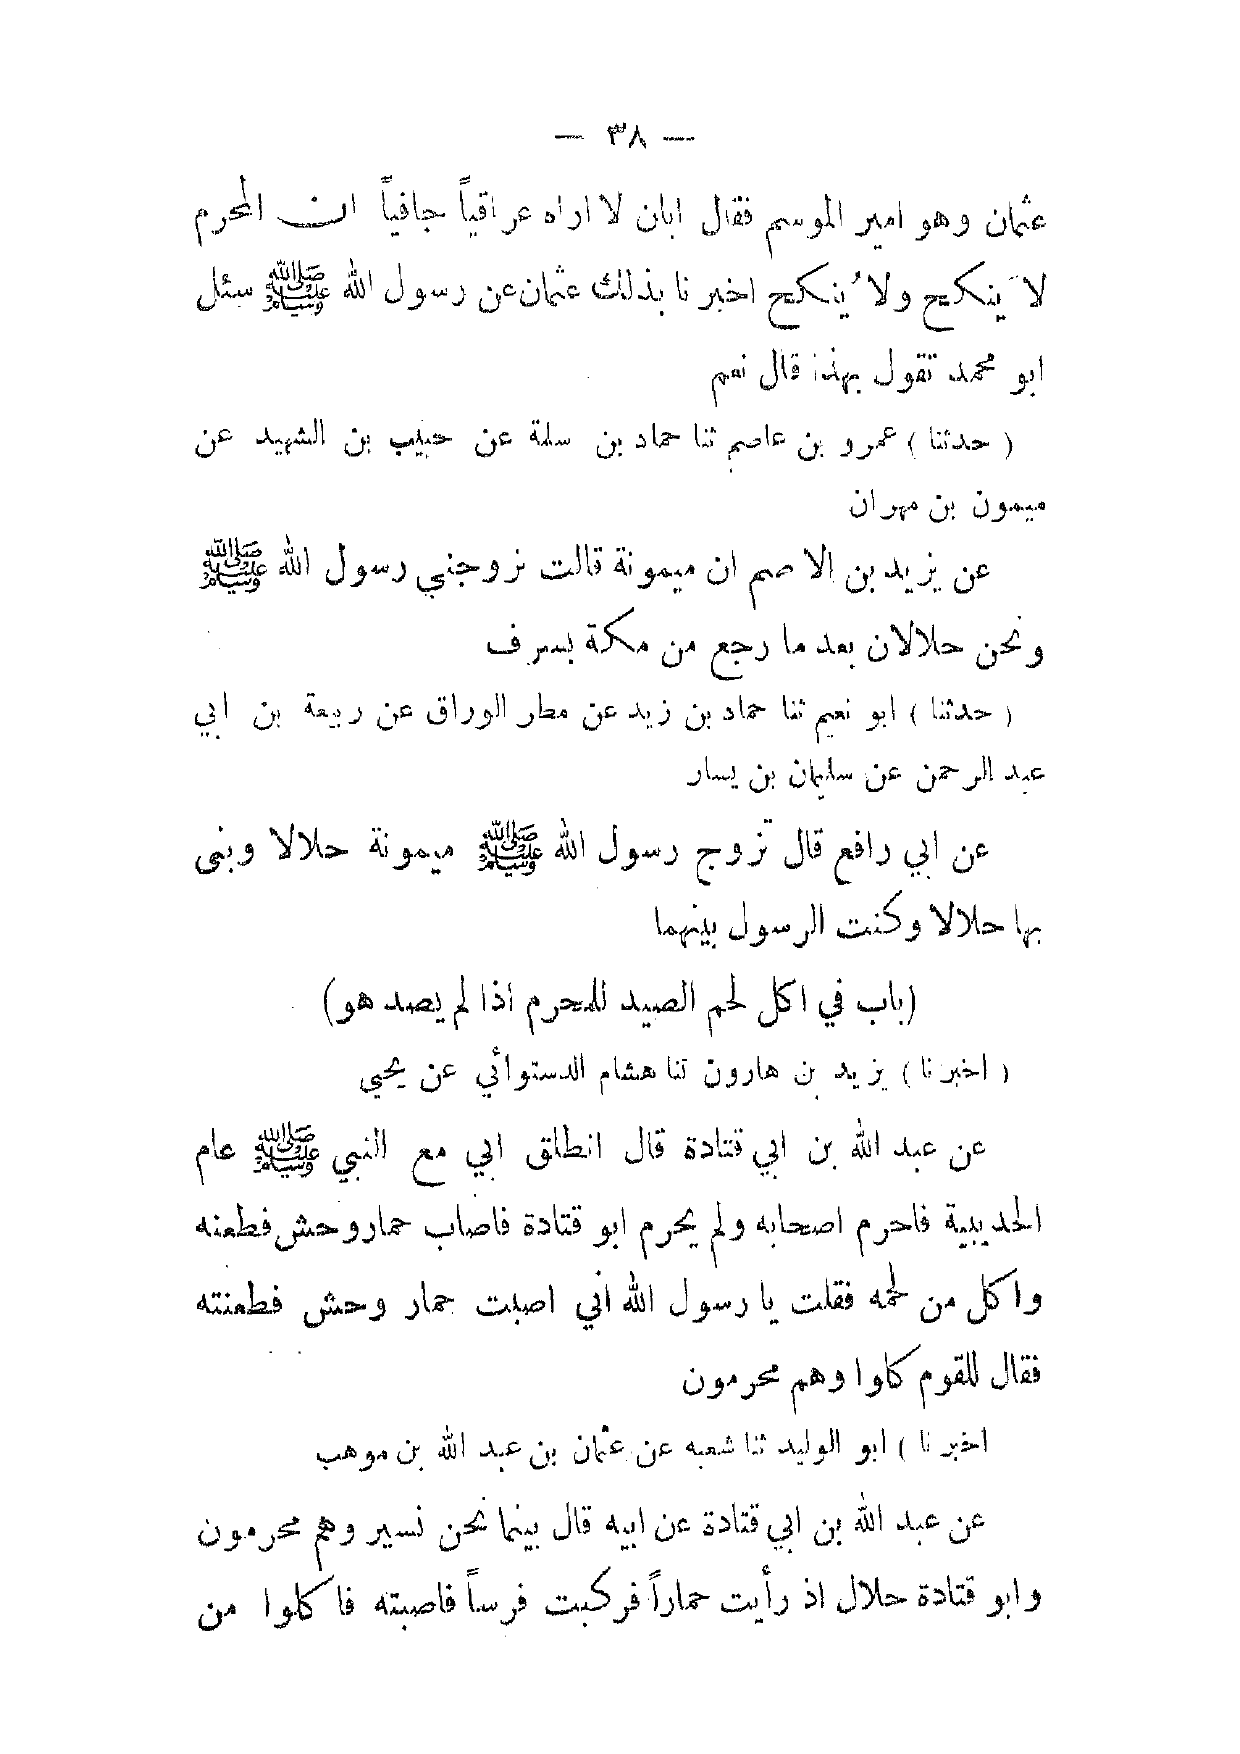 — ٣٨ —
عثمان وهو امير الموسم فقال ابان لا اراه عراقياً جافياً ان المحرم
لا يَنكح ولا يُنكح اخبر نا بذلك عثمان عن رسول الله ﷺ سئل
ابو محمد تقول بهذا قال نعم
( حدثنا ) عمرو بن عاصم ثنا حماد بن سلمة عن حبيب بن الشهيد عن
ميمون بن مهران
عن يزيد بن الاصم ان ميمونة قالت تزوجني رسول الله ﷺ
ونحن حلالان بعد ما رجع من مكة بسرف
( حدثنا ) ابو نعيم ثنا حماد بن زيد عن مطر الوراق عن ربيعة بن ابي
عبد الرحمن عن سليمان بن يسار
عن ابي رافع قال تزوج رسول الله ﷺ ميمونة حلالا وبنى
بها حلالا وكنت الرسول بينهما
(باب في اكل لحم الصيد للمحرم اذا لم يصد هو)
( اخبرنا ) يزيد بن هارون ثنا هشام الدستوائي عن يحيى
عن عبد الله بن ابي قتادة قال انطلق ابي مع النبي ﷺ عام
الحديبية فاحرم اصحابه ولم يحرم ابو قتادة فاصاب حمار وحش فطعنه
واكل من لحمه فقلت يا رسول الله اني اصبت حمار وحش فطعنته
فقال للقوم كلوا وهم محرمون
اخبرنا ) ابو الوليد ثنا شعبه عن عثمان بن عبد الله بن موهب
عن عبد الله بن ابي قتادة عن ابيه قال بينما نحن نسير وهم محرمون
وابو قتادة حلال اذ رأيت حماراً فركبت فرساً فاصبته فاكلوا من